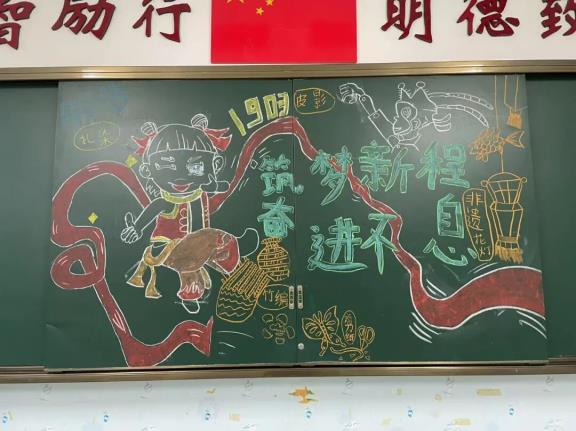 智励行
明德致
1903
皮影
扎染
筑梦新程
奋进不息
非遗花灯
竹编